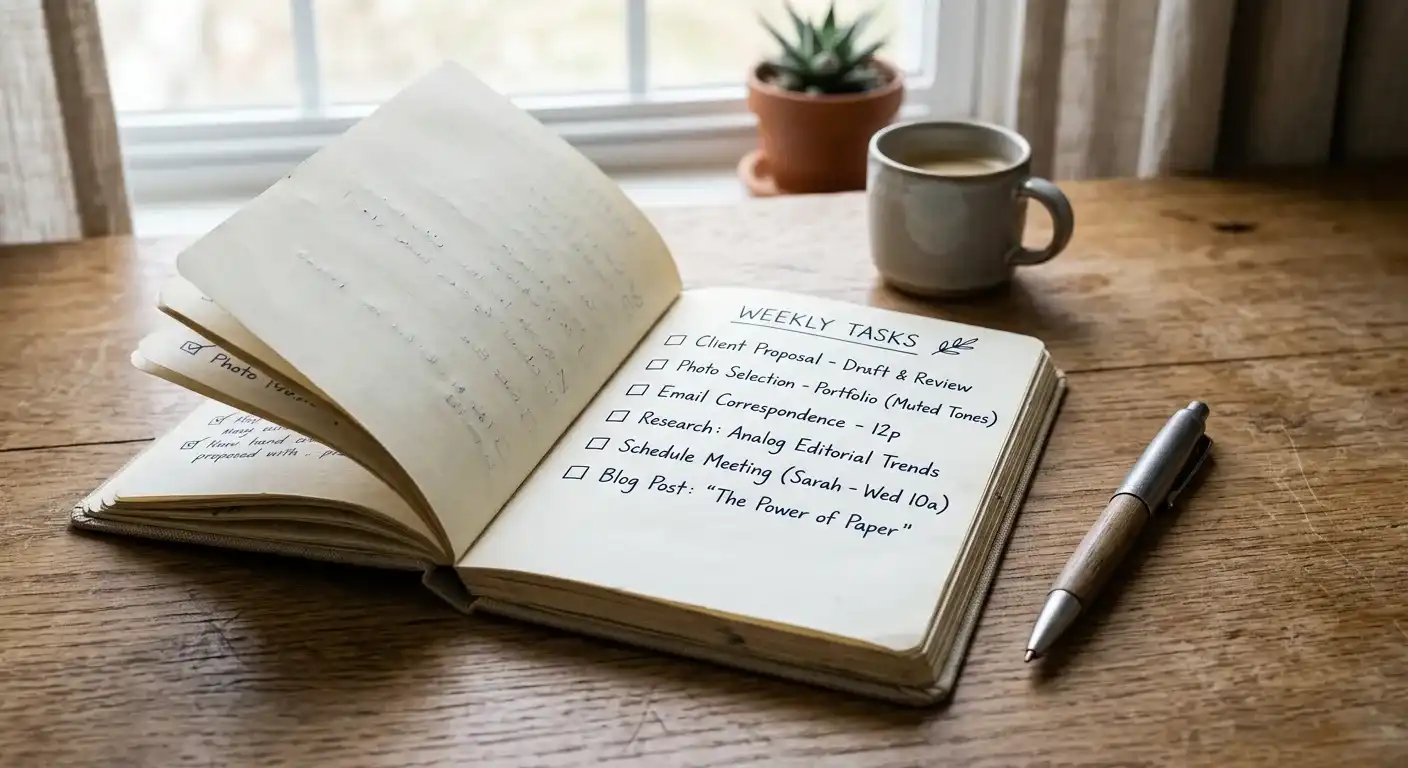 WEEKLY TASKS
Client Proposal - Draft & Review
Photo Selection - Portfolio (Muted Tones)
Email Correspondence - 12p
Research: Analog Editorial Trends
Schedule Meeting (Sarah - Wed 10a)
Blog Post: "The Power of Paper"
Photo
hand
proposed with ..